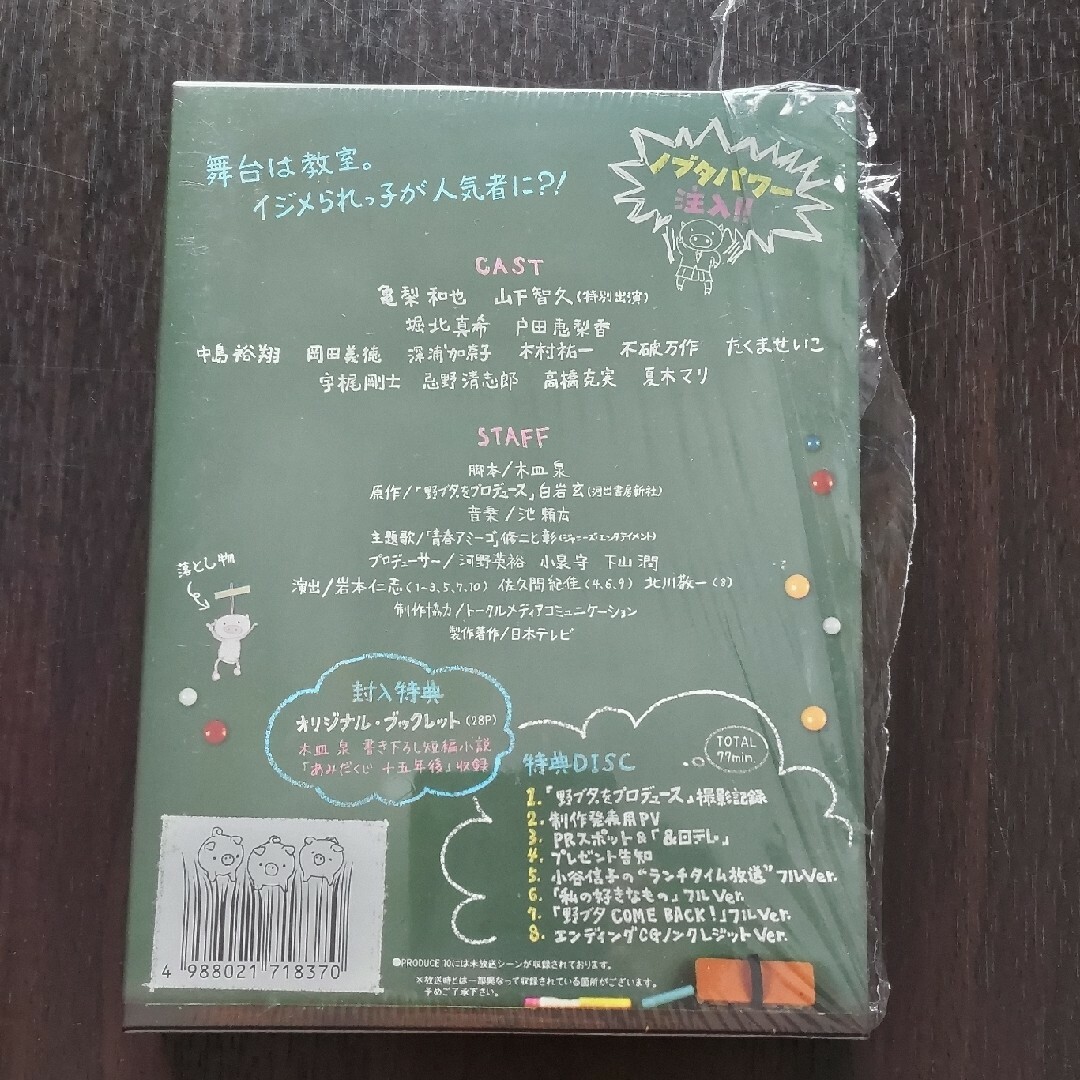 舞台は教室。
イジメられっ子が人気者に?!
ノブタパワー
注入!!
CAST
亀梨和也 山下智久(特別出演)
堀北真希 戸田恵梨香
中島裕翔 岡田義徳 深浦加奈子 木村祐一 不破万作 たくませいこ
宇梶剛士 忌野清志郎 高橋克実 夏木マリ
STAFF
脚本/木皿 泉
原作/「野ブタ。をプロデュース」白岩玄(河出書房新社)
音楽/池 頼広
主題歌/「青春アミーゴ」修二と彰(ジャニーズ・エンタテイメント)
プロデューサー/河野英裕 小泉守 下山潤
演出/岩本仁志(1-3、5、7、10) 佐久間紀佳(4、6、9) 北川敬一(8)
制作協力/トータルメディアコミュニケーション
製作著作/日本テレビ
落とし物
封入特典
オリジナル・ブックレット(28P)
木皿 泉 書き下ろし短編小説
「あみだくじ 十五年後」収録
特典DISC
TOTAL
77min.
1.「野ブタ。をプロデュース」撮影記録
2.制作発表用PV
3.PRスポット&「&日テレ」
4.プレゼント告知
5.小谷信子の“ランチタイム放送”フルVer.
6.「私の好きなもの」フルVer.
7.「野ブタ COME BACK!」フルVer.
8.エンディングCGノンクレジットVer.
4 988021 718370
●PRODUCE 10には未放送シーンが収録されております。
※放送時とは一部異なって収録されている箇所がございます。
予めご了承下さい。